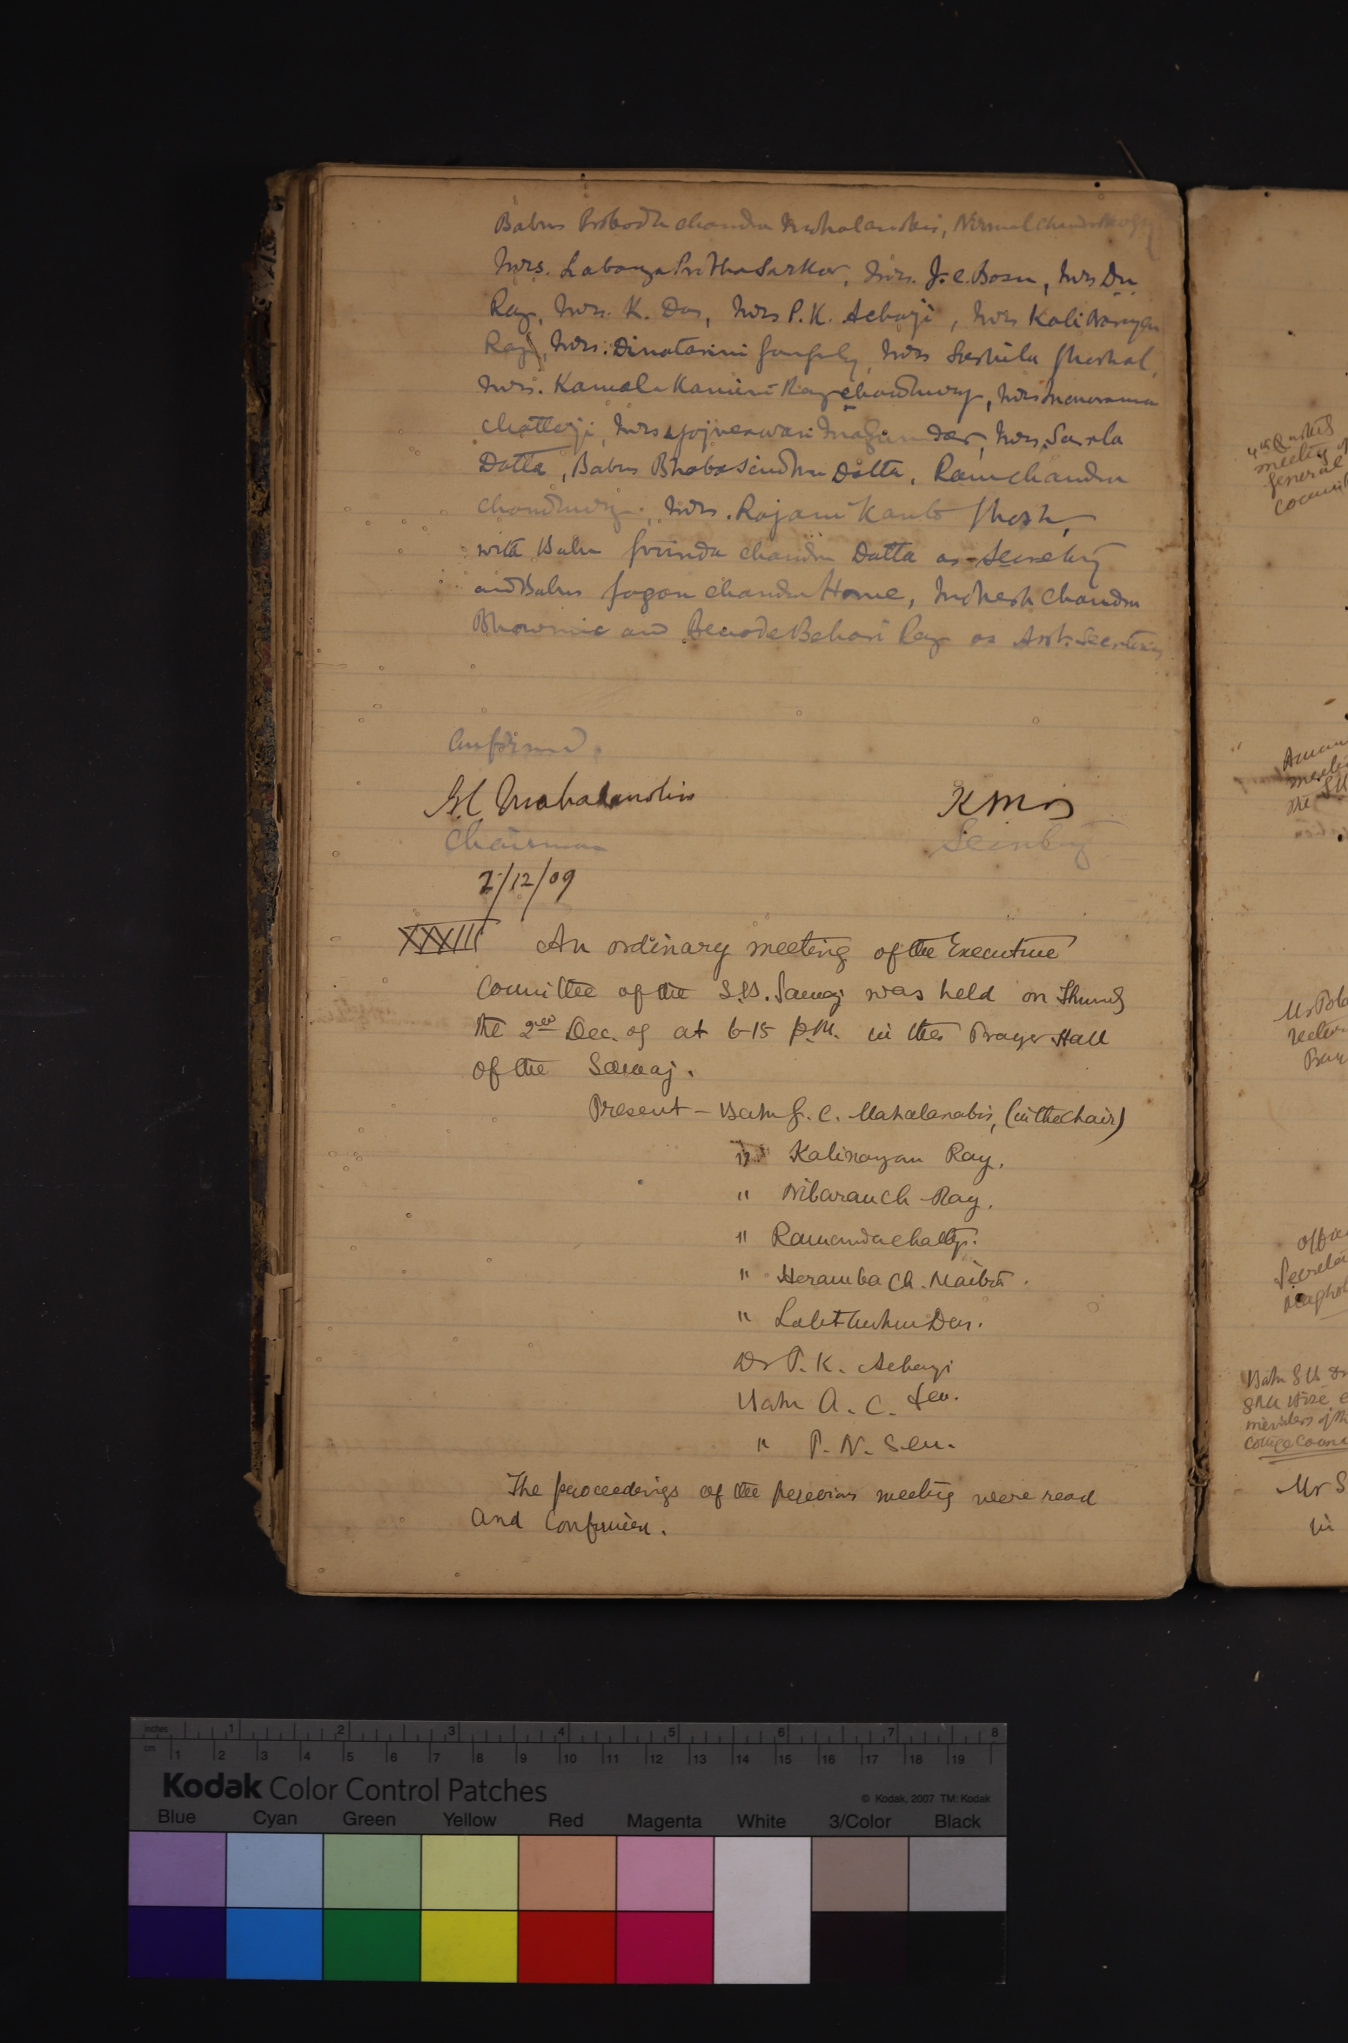 Babus Probodh Chandra Mahalanobis, Nirmal Chandra
Mrs. Labanya Probha Sarkar, Mrs. J. C. Bose, Mrs Dr.
Ray, Mrs. K. Das, Mrs P. K. Acharji, Mrs Kali Narayan
Ray, Mrs. Dinatarini Ganguly, Mrs Sushila Ghoshal,
Mrs. Kamala Kamini Ray Chowdhury, Mrs Monorama
Chatterji, Mrs Mazumdar, Mrs. Sarla
Datta, Babus Bhaba Sindhu Datta, Ram Chandra
Chowdhury, Mrs. Rajani Kanto Ghosh,
with Babu Govinda Chandra Datta as Secretary
and Babus Gagan Chandra Home, Mohesh Chandra
Bhowmic and Benode Behari Ray as Asst. Secretaries
Confirmed.
G. C. Mahalanobis
Chairman
Secretary
2/12/09
XXXIII An ordinary meeting of the Executive
Committee of the S.B. Samaj was held on Thurs
the 2nd Dec. 09 at 6-15 P.M. in the Prayer Hall
of the Samaj.
Present — Babu G. C. Mahalanabis, (in the chair)
" Kalinarayan Ray.
" Nibaran Ch. Ray.
" Ramananda Chatterji.
" Heramba Ch. Maitra.
" Lalit Mohun Das.
Dr P. K. Acharji
Babu A. C. Sen.
" P. N. Sen.
The proceedings of the previous meeting were read
and confirmed.
meeting of
General
Mr
in
inches 1 2 3 4 5 6 7 8
cm 1 2 3 4 5 6 7 8 9 10 11 12 13 14 15 16 17 18 19
Kodak Color Control Patches
© Kodak, 2007 TM: Kodak
Blue Cyan Green Yellow Red Magenta White 3/Color Black